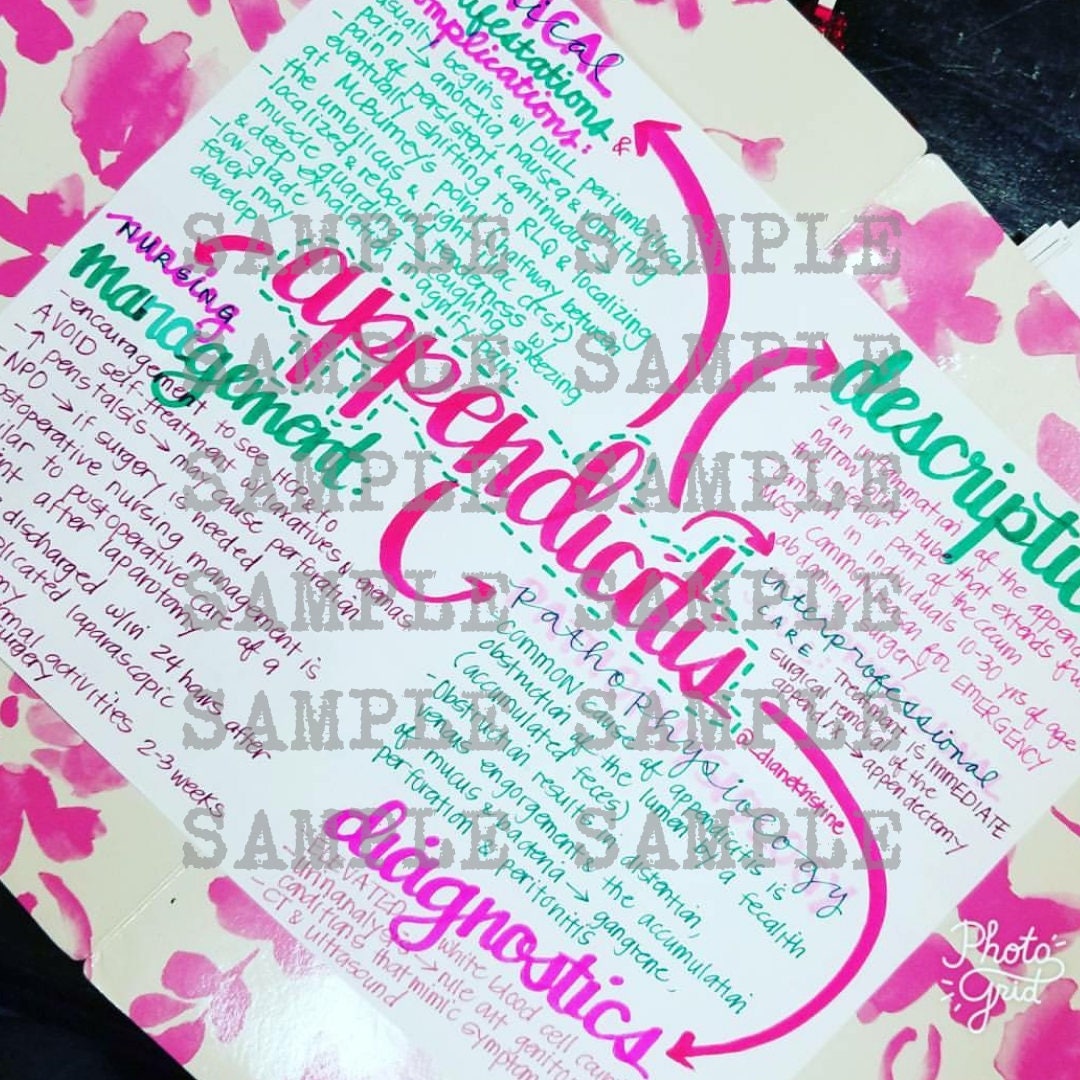 CLINICAL
manifestations &
complications:
usually begins w/ DULL periumbilical
pain → anorexia, nausea & vomiting
pain is persistent & continuous →
eventually shifting to RLQ & localizing
at McBurney's point (halfway between
the umbilicus & right iliac crest)
- localized & rebound tenderness w/
muscle guarding → sneezing
& deep exhalation magnify pain.
- low-grade
fever may
develop
NURSING
management:
- encouragement to see HCP & to
AVOID self-treatment w/ laxatives & enemas
→ ↑ peristalsis → may cause perforation
- NPO → if surgery is needed
postoperative nursing management is
similar to postoperative care of a
after laparotomy
discharged w/in 24 hours after
laparascopic
normal activities 2-3 weeks
surgery
appendicitis
description
- an inflammation of the
narrow blind tube that extends from
the inferior part of the cecum
- common in individuals 10-30 yrs of age
- Most common reason for EMERGENCY
abdominal surgery
interprofessional
CARE: Treatment is IMMEDIATE
surgical removal of the
appendix → appendectomy
@dianekristine
pathophysiology
COMMON cause of appendicitis is
obstruction of the lumen by a fecalith
(accumulated feces)
- Obstruction results in distention,
venous engorgement & the accumulation
of mucus & bacteria → gangrene,
perforation & peritonitis
diagnostics
- ELEVATED white blood cell count
- urinanalysis → rule out
conditions that mimic
- CT & ultrasound
SAMPLE SAMPLE
SAMPLE SAMPLE
SAMPLE SAMPLE
SAMPLE SAMPLE
SAMPLE SAMPLE
SAMPLE SAMPLE
Photo
Grid